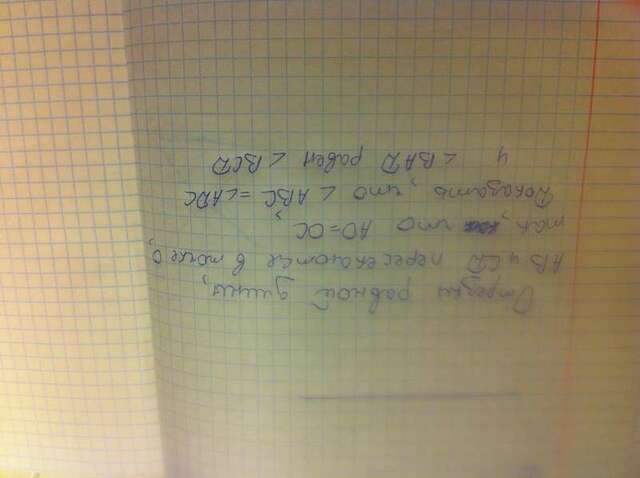 Отрезки равной длины,
АВ и CD пересекаются в точке О,
так, что АО=ОС
Доказать, что ∠ АВС =∠ADC
и ∠ BAD равен ∠ BCD